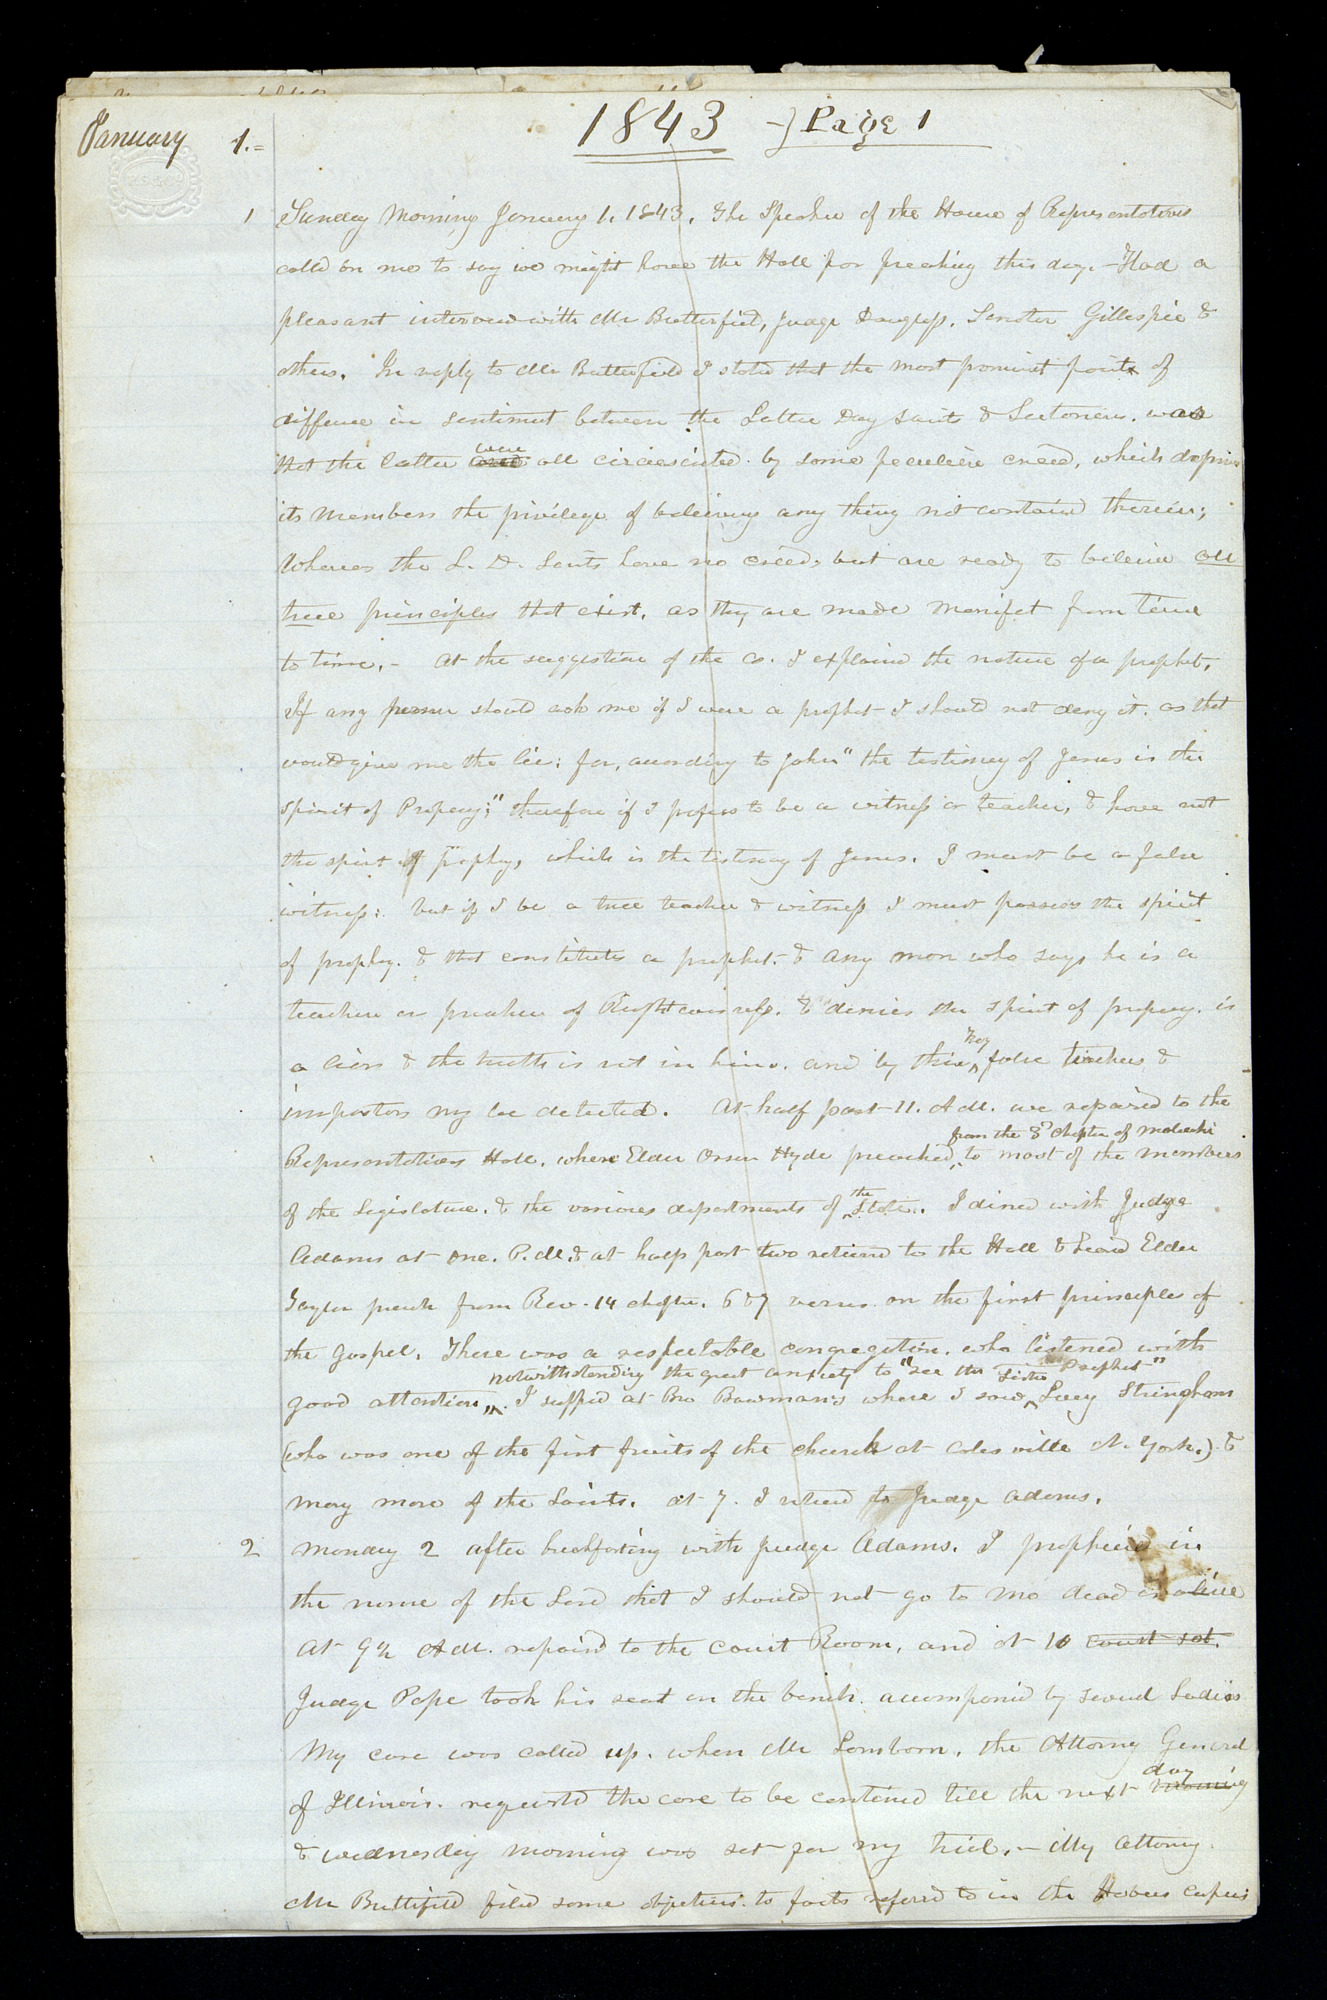 1843 Page 1
January 1.=
1 Sunday Morning January 1, 1843. The Speaker of the House of Representatives
called on me to say we might have the Hall for preaching this day. - Had a
pleasant interview with Mr Butterfield, Judge Douglass, Senator Gillespie &
others. In reply to Mr Butterfield I stated that the most prominent points of
diffence in sentiment between the Latter Day Saints & Sectarians. was
that the latter were all circumscribed by some peculiar creed, which deprives
its members the privilege of believing any thing not contained therein;
Whereas the L. D. Saints have no creed, but are ready to believe all
true principles that exist, as they are made manifest from time
to time. - at the suggestion of the co. I explained the nature of a prophet.
If any person should ask me if I were a prophet I should not deny it. as that
would give me the lie: for, according to John "the testimony of Jesus is the
spirit of Prophecy;" therefore if I profess to be a witness or teacher, & have not
the spirit of prophecy, which is the testimony of Jesus. I must be a false
witness; but if I be a true teacher & witness I must possess the spirit
of prophecy. & that constitutes a prophet. & any man who says he is a
teacher or preacher of Righteousness. & denies the spirit of prophecy. is
a liar & the truth is not in him. and by this key false teachers &
impostors my be detected. At half past 11. A M. we repaired to the
Representatives Hall. where Elder Orson Hyde preached, from the 3d chapter of malachi to most of the members
of the Legislature. & the various departments of the State. I dined with Judge
Adams at one. P. M. & at half past two returned to the Hall & heard Elder
Taylor preach from Rev. 14 chapter. 6 & 7 verses on the first principles of
the gospel. There was a respectable congregation. who listened with
good attention, notwithstanding the great anxiety to "see the Prophet". I supped at Bro Bowman's where I saw Sister Lucy Stringham
(who was one of the first fruits of the church at Colesville N. York.) &
many more of the Saints. at 7. I returned to Judge Adams.
2 Monday 2 after breakfasting with judge Adams. I prophesied in
the name of the Lord that I should not go to Mo dead or alive
At 9½ A M. repaired to the court Room. and at 10 court sat.
Judge Pope took his seat on the bench. accompanied by several Ladies
My case was called up. when Mr Lamborn. the Attorny General
of Illinois. requested the case to be continued till the next day morning
& wednesday morning was set for my trial. - My attorny.
Mr Butterfield filed some objections. to facts referred to in the Habeus Corpus